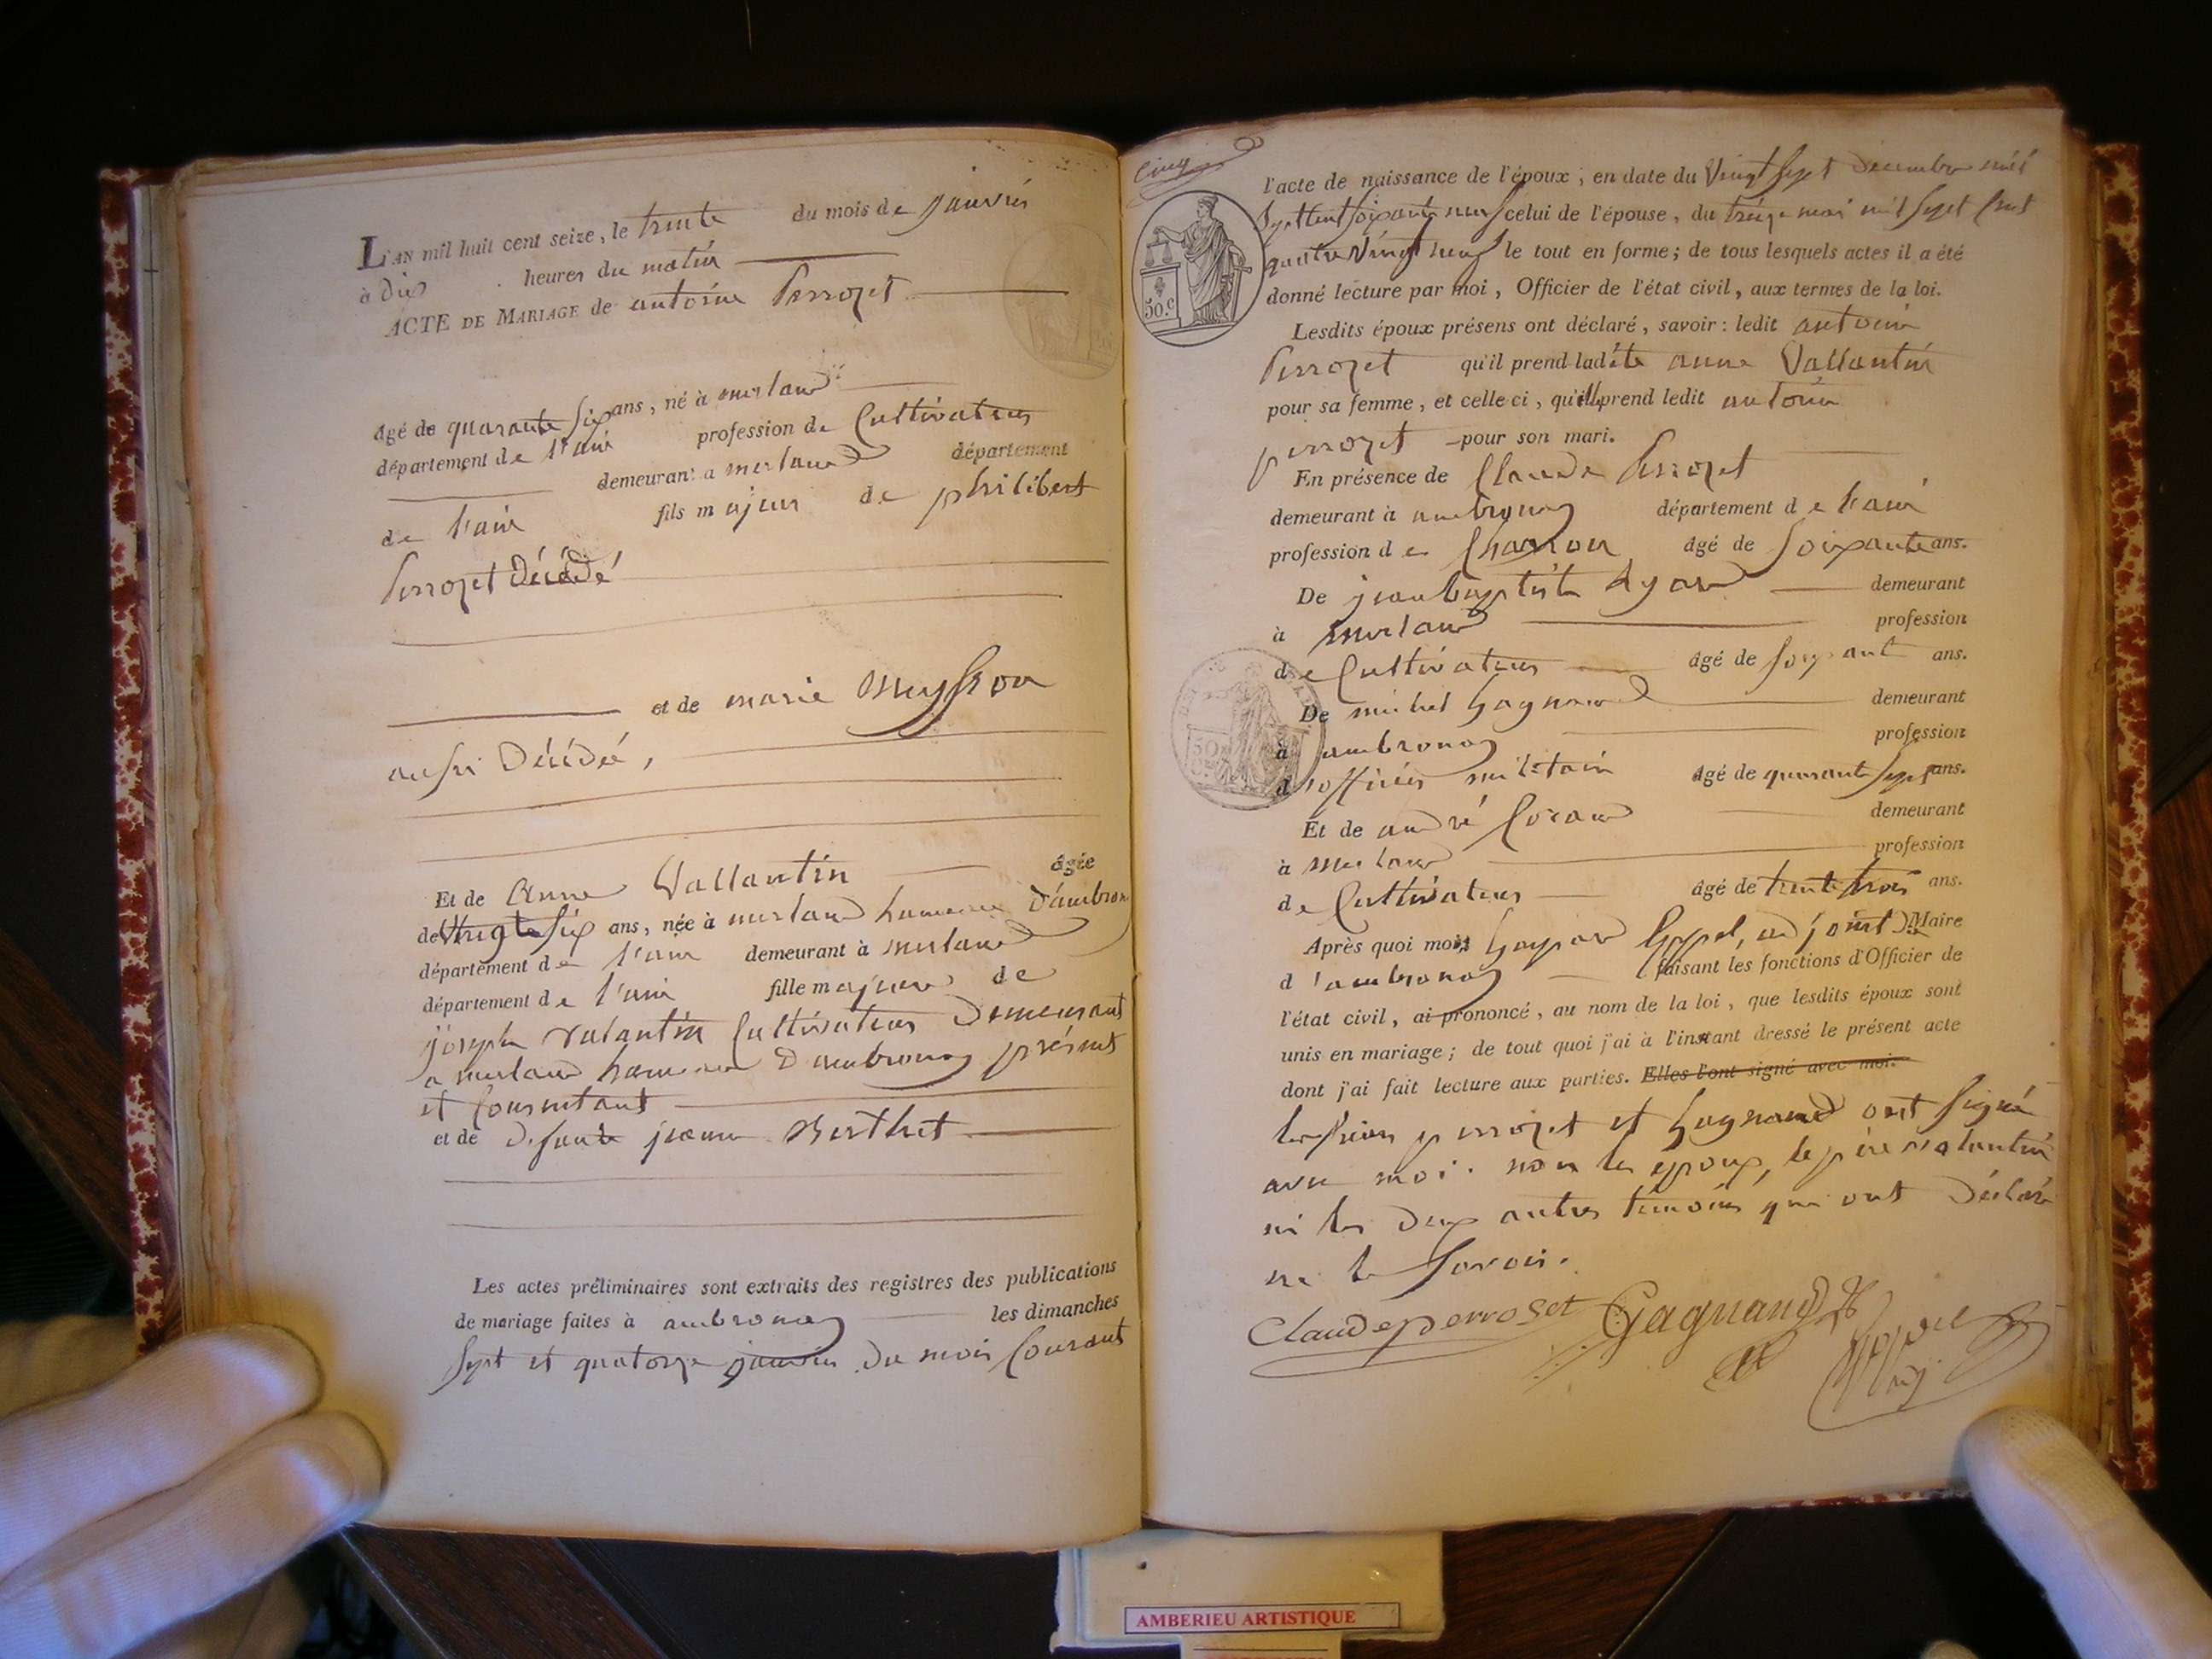 L'AN mil huit cent seize, le trente du mois de janvier
à dix heures du matin
ACTE DE MARIAGE de antoine Perrozet
âgé de quarante six ans, né à merland
département de l'ain profession de Cultivateur
demeurant a merland département
de l'ain fils majeur de philibert
Perrozet Décédé
et de marie
aussi Décédée,
Et de Anne Vallantin âgée
de Vingt six ans, née à merland hameau d'ambron
département de l'ain demeurant à merland
département de l'ain fille majeure de
joseph valantin Cultivateur Demeurant
a merland hameau D'ambronay présent
et Consentant
et de defunte jeanne Berthet
Les actes préliminaires sont extraits des registres des publications
de mariage faites à ambronay les dimanches
Sept et quatorze janvier du mois Courant
Cinq
l'acte de naissance de l'époux ; en date du Vingt Sept Décembre mil
Sept Cent Soixante neuf celui de l'épouse, du treize mai mil Sept Cent
quatre Vingt neuf le tout en forme ; de tous lesquels actes il a été
50.c
donné lecture par moi, Officier de l'état civil, aux termes de la loi.
Lesdits époux présens ont déclaré, savoir : ledit antoine
Perrozet qu'il prend ladite anne Vallantin
pour sa femme, et celle ci, qu'elle prend ledit antoine
perrozet pour son mari.
En présence de Claude Perrozet
demeurant à ambronay département de l'ain
profession de Charron âgé de Soixante ans.
De jean baptiste demeurant
à merland profession
de Cultivateur âgé de Soixante ans.
De michel Gagnand demeurant
à ambronay profession
d'officier militaire âgé de quarante Sept ans.
Et de andré demeurant
à merland profession
de Cultivateur âgé de trente trois ans.
Après quoi moi, adjoint Maire
d'ambronay faisant les fonctions d'Officier de
l'état civil, ai prononcé, au nom de la loi, que lesdits époux sont
unis en mariage ; de tout quoi j'ai à l'instant dressé le présent acte
dont j'ai fait lecture aux parties. Elles l'ont signé avec moi.
les Sieurs perrozet et Gagnand ont Signé
avec moi. non les époux, le père valantin
ni les Deux autres témoins qui ont Déclaré
ne le Savoir.
Claude perroset Gagnand
AMBERIEU ARTISTIQUE